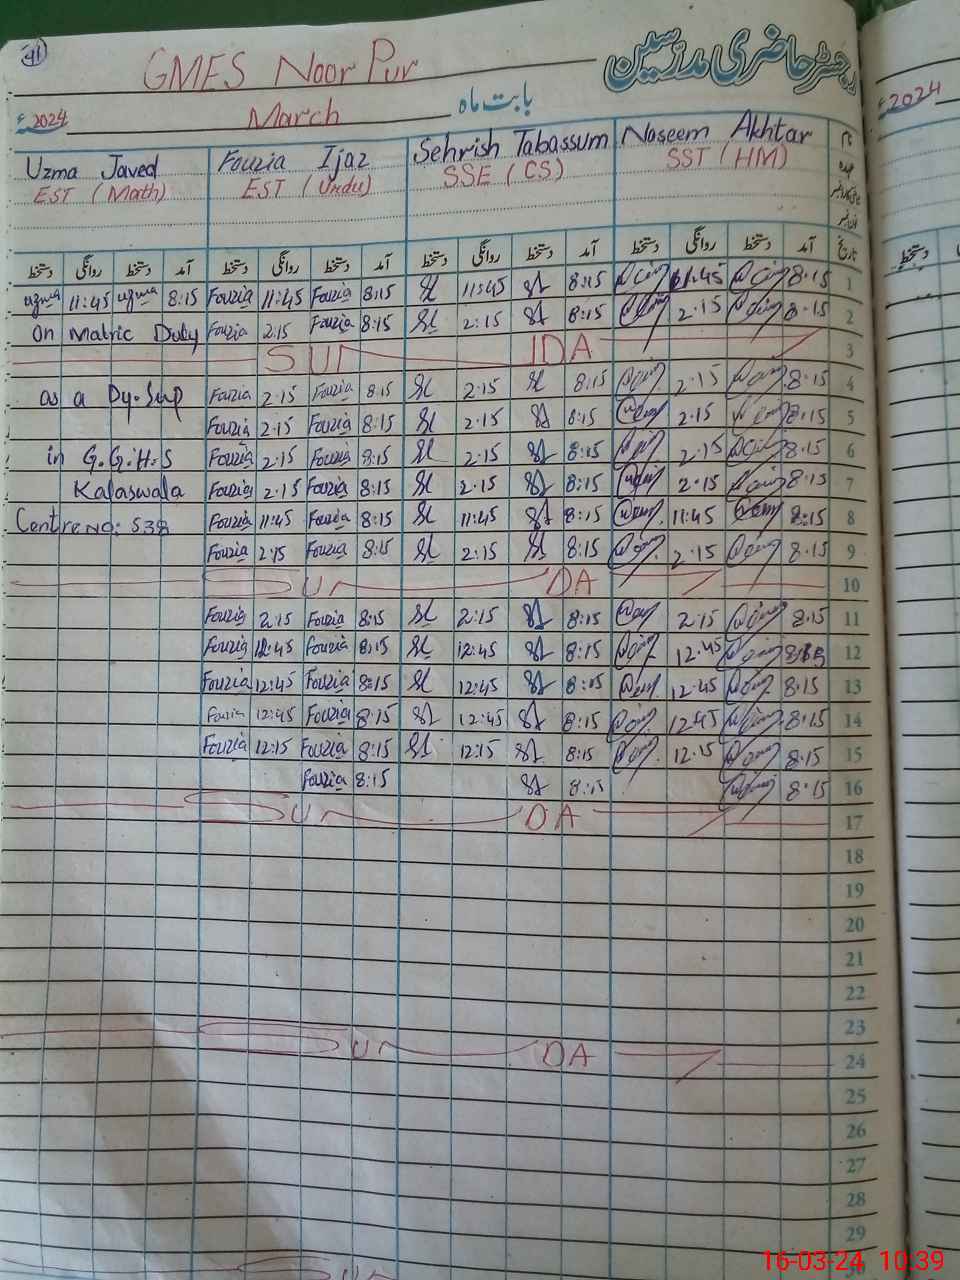 41
GMES Noor Pur
رجسٹر حاضری مدرسین
2024ء March بابت ماہ
Uzma Javed Fouzia Ijaz Sehrish Tabassum Naseem Akhtar نام
EST (Math) EST (Urdu) SSE (CS) SST (HM) عہدہ
دستخط روانگی دستخط آمد دستخط روانگی دستخط آمد دستخط روانگی دستخط آمد دستخط روانگی دستخط آمد تاریخ
uzma 11:45 uzma 8:15 Fouzia 11:45 Fouzia 8:15 11:45 8:15 11.45 8.15 1
On Matric Duty Fouzia 2:15 Fouzia 8:15 2:15 8:15 2.15 8.15 2
SUN DA 3
as a Dy. Sup Fouzia 2:15 Fouzia 8:15 2:15 8:15 2.15 8.15 4
Fouzia 2:15 Fouzia 8:15 2:15 8:15 2.15 8.15 5
in G.G.H.S Fouzia 2:15 Fouzia 8:15 2:15 8:15 2.15 8.15 6
Kalaswala Fouzia 2:15 Fouzia 8:15 2:15 8:15 2.15 8.15 7
Centre No: 538 Fouzia 11:45 Fouzia 8:15 11:45 8:15 11.45 8.15 8
Fouzia 2:15 Fouzia 8:15 2:15 8:15 2.15 8.15 9
SUN DA 10
Fouzia 2:15 Fouzia 8:15 2:15 8:15 2.15 8.15 11
Fouzia 12:45 Fouzia 8:15 12:45 8:15 12.45 8.15 12
Fouzia 12:45 Fouzia 8:15 12:45 8:15 12.45 8.15 13
Fouzia 12:45 Fouzia 8:15 12:45 8:15 12.45 8.15 14
Fouzia 12:15 Fouzia 8:15 12:15 8:15 12.15 8.15 15
Fouzia 8:15 8:15 8.15 16
SUN DA 17
18
19
20
21
22
23
SUN DA 24
25
26
27
28
29
2024ء
دستخط
16-03-24 10:39